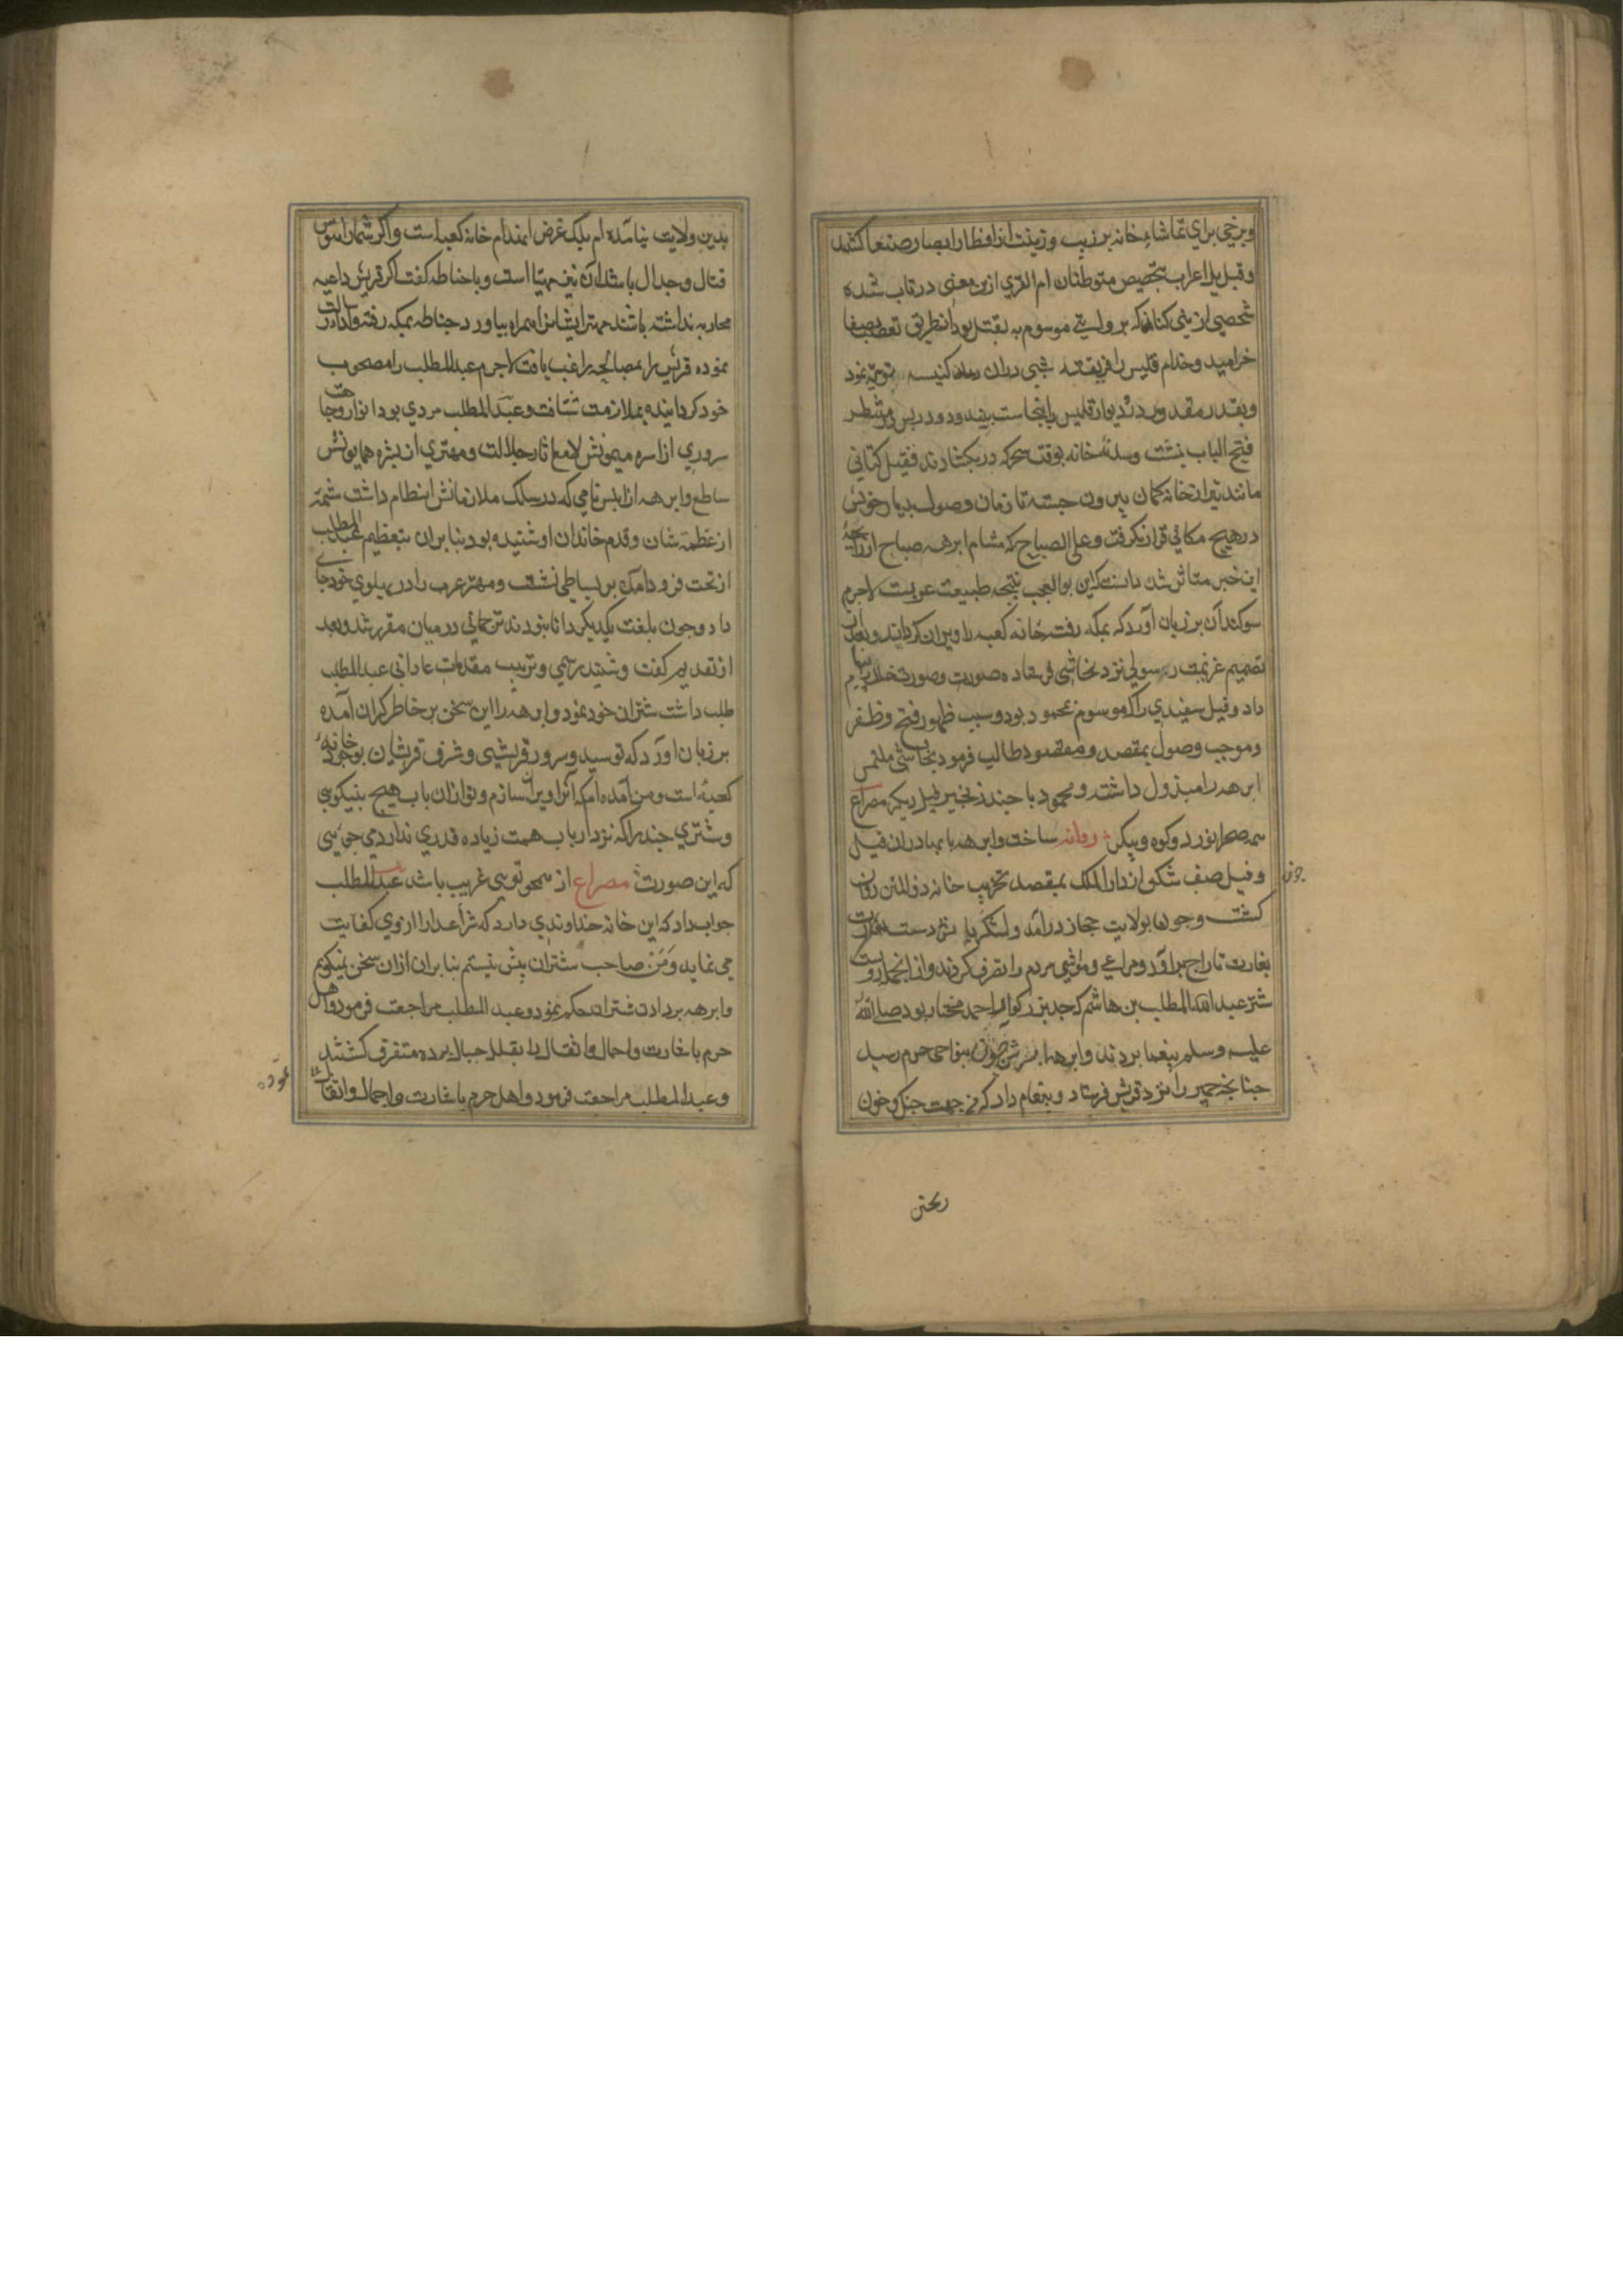 وبرخی برای تماشاء خانه بر زیب و زینت از اقطار ابصار صنعا کشد
وقبل یل اعراب بتخصیص متوطنان ام القری ازین معنی در تاب شده
شخصی از بنی کنانه که بروایتی موسوم به نقیل بود از طریق تعصب بصنعا
خرامید و خدام قلیس را فریفته شبی دران کنیسه نمود
وبقدر مقدور در و دیوار قلیس را بنجاست بیندود و در پس در منتظر
فتح الباب بنشست وسدنهٔ خانه بوقت سحر که در بکشادند نقیل کنانی
مانند تیر از خانه کمان بیرون جسته تا زمان وصول بدیار خویش
در هیچ مکانی قرار نکرفت وعلی الصباح که مشام ابرهه صباح از رایحهٔ
این خبر متاثر شد دانست که این بوالعجب نتیجه طبیعت عربست لاجرم
سوکند آن بر زبان آورد که بمکه رفته خانه کعبه را ویران کرداند وبعد از
تصمیم عزیمت رسولی نزد نجاشی فرستاده صورت بیام
داد وفیل سفیدی را که موسوم بمحمود بود وسبب ظهور فتح وظفر
وموجب وصول بمقصد ومقصود طالب فرمود نجاشی ملتمس
ابرهه را مبذول داشته ومحمود با چند زنجیر فیل دیکر مصراع
همه صحرا نورد وکوه وپیکر روانه ساخت وابرهه با بهادران فیل
وفیل صف شکن از دار الملک بمقصد تخریب خانه ذو المنن روان
کشت وچون بولایت حجاز درآمد ولشکریان دست
بغارت تاراج برآورد ومراعی ومواشی مردم را تصرف کردند واز انجمله دویست
شتر عبد الله المطلب بن هاشم که جد بزرکوار احمد مختار بود صلی الله
علیه وسلم بیغما بردند وابرهه بنواحی حرم رسید
حناطه حمیری را نزد قریش فرستاد وپیغام داد که من جهت جنک وخون
چون
ریختن
بدین ولایت نیامده ام بلک غرض انهدام خانه کعبه است واکر شما را هوس
قتال وجدال باشد آن نیز مهیا است وبا حناطه کفت اکر قریش داعیه
محاربه نداشته باشند مهتر ایشان را همراه بیاور حناطه بمکه رفته وادا رسالت
نموده قریش را بمصالحه راغب یافت لاجرم عبد المطلب را مصحوب
خود کردانیده بملازمت شتافت وعبد المطلب مردی بود انوار وجاهت
سروری از اسره میمونش لامع واثار جلالت ومهتری از بشره همایونش
ساطع وابرهه از انیس نامی که در سلک ملازمانش انتظام داشت شمه
از عظمت شان وقدم خاندان او شنیده بود بنابران بتعظیم عبد المطلب
از تخت فرود آمده بر بساطی نشست ومهتر عرب را در پهلوی خود جای
داد وچون بلغت یکدیکر دانا نبودند ترجمانی در میان مقرر شد وبعد
از تقدیم کفت وشنید رسمی وترتیب مقدمات عادانی عبد المطلب
طلب داشت شتران خود نمود وابرهه را این سخن بر خاطر کران آمده
بر زبان آورد که تو سید وسرور قریشی وشرف قریشان بوجود خانهٔ
کعبه است ومن آمده ام که آنرا ویران سازم وتو ازان باب هیچ نمیکویی
وشتری چند را که نزد ارباب همت زیاده قدری ندارد می جویی
که این صورت مصراع از همچو تویی غریب باشد عبد المطلب
جواب داد که این خانه خداوندی دارد که شر اعدا را از وی کفایت
می نماید ومن صاحب شتران بیش نیستم بنابران ازان سخن نمیکویم
وابرهه برد ان شتران حکم نمود وعبد المطلب مراجعت فرمود واهل
حرم باشارت واحمال واثقال را بقلل جبال برده متفرق کشتند
وعبد المطلب مراجعت فرمود واهل حرم باشارت واحمال واثقال
نموده